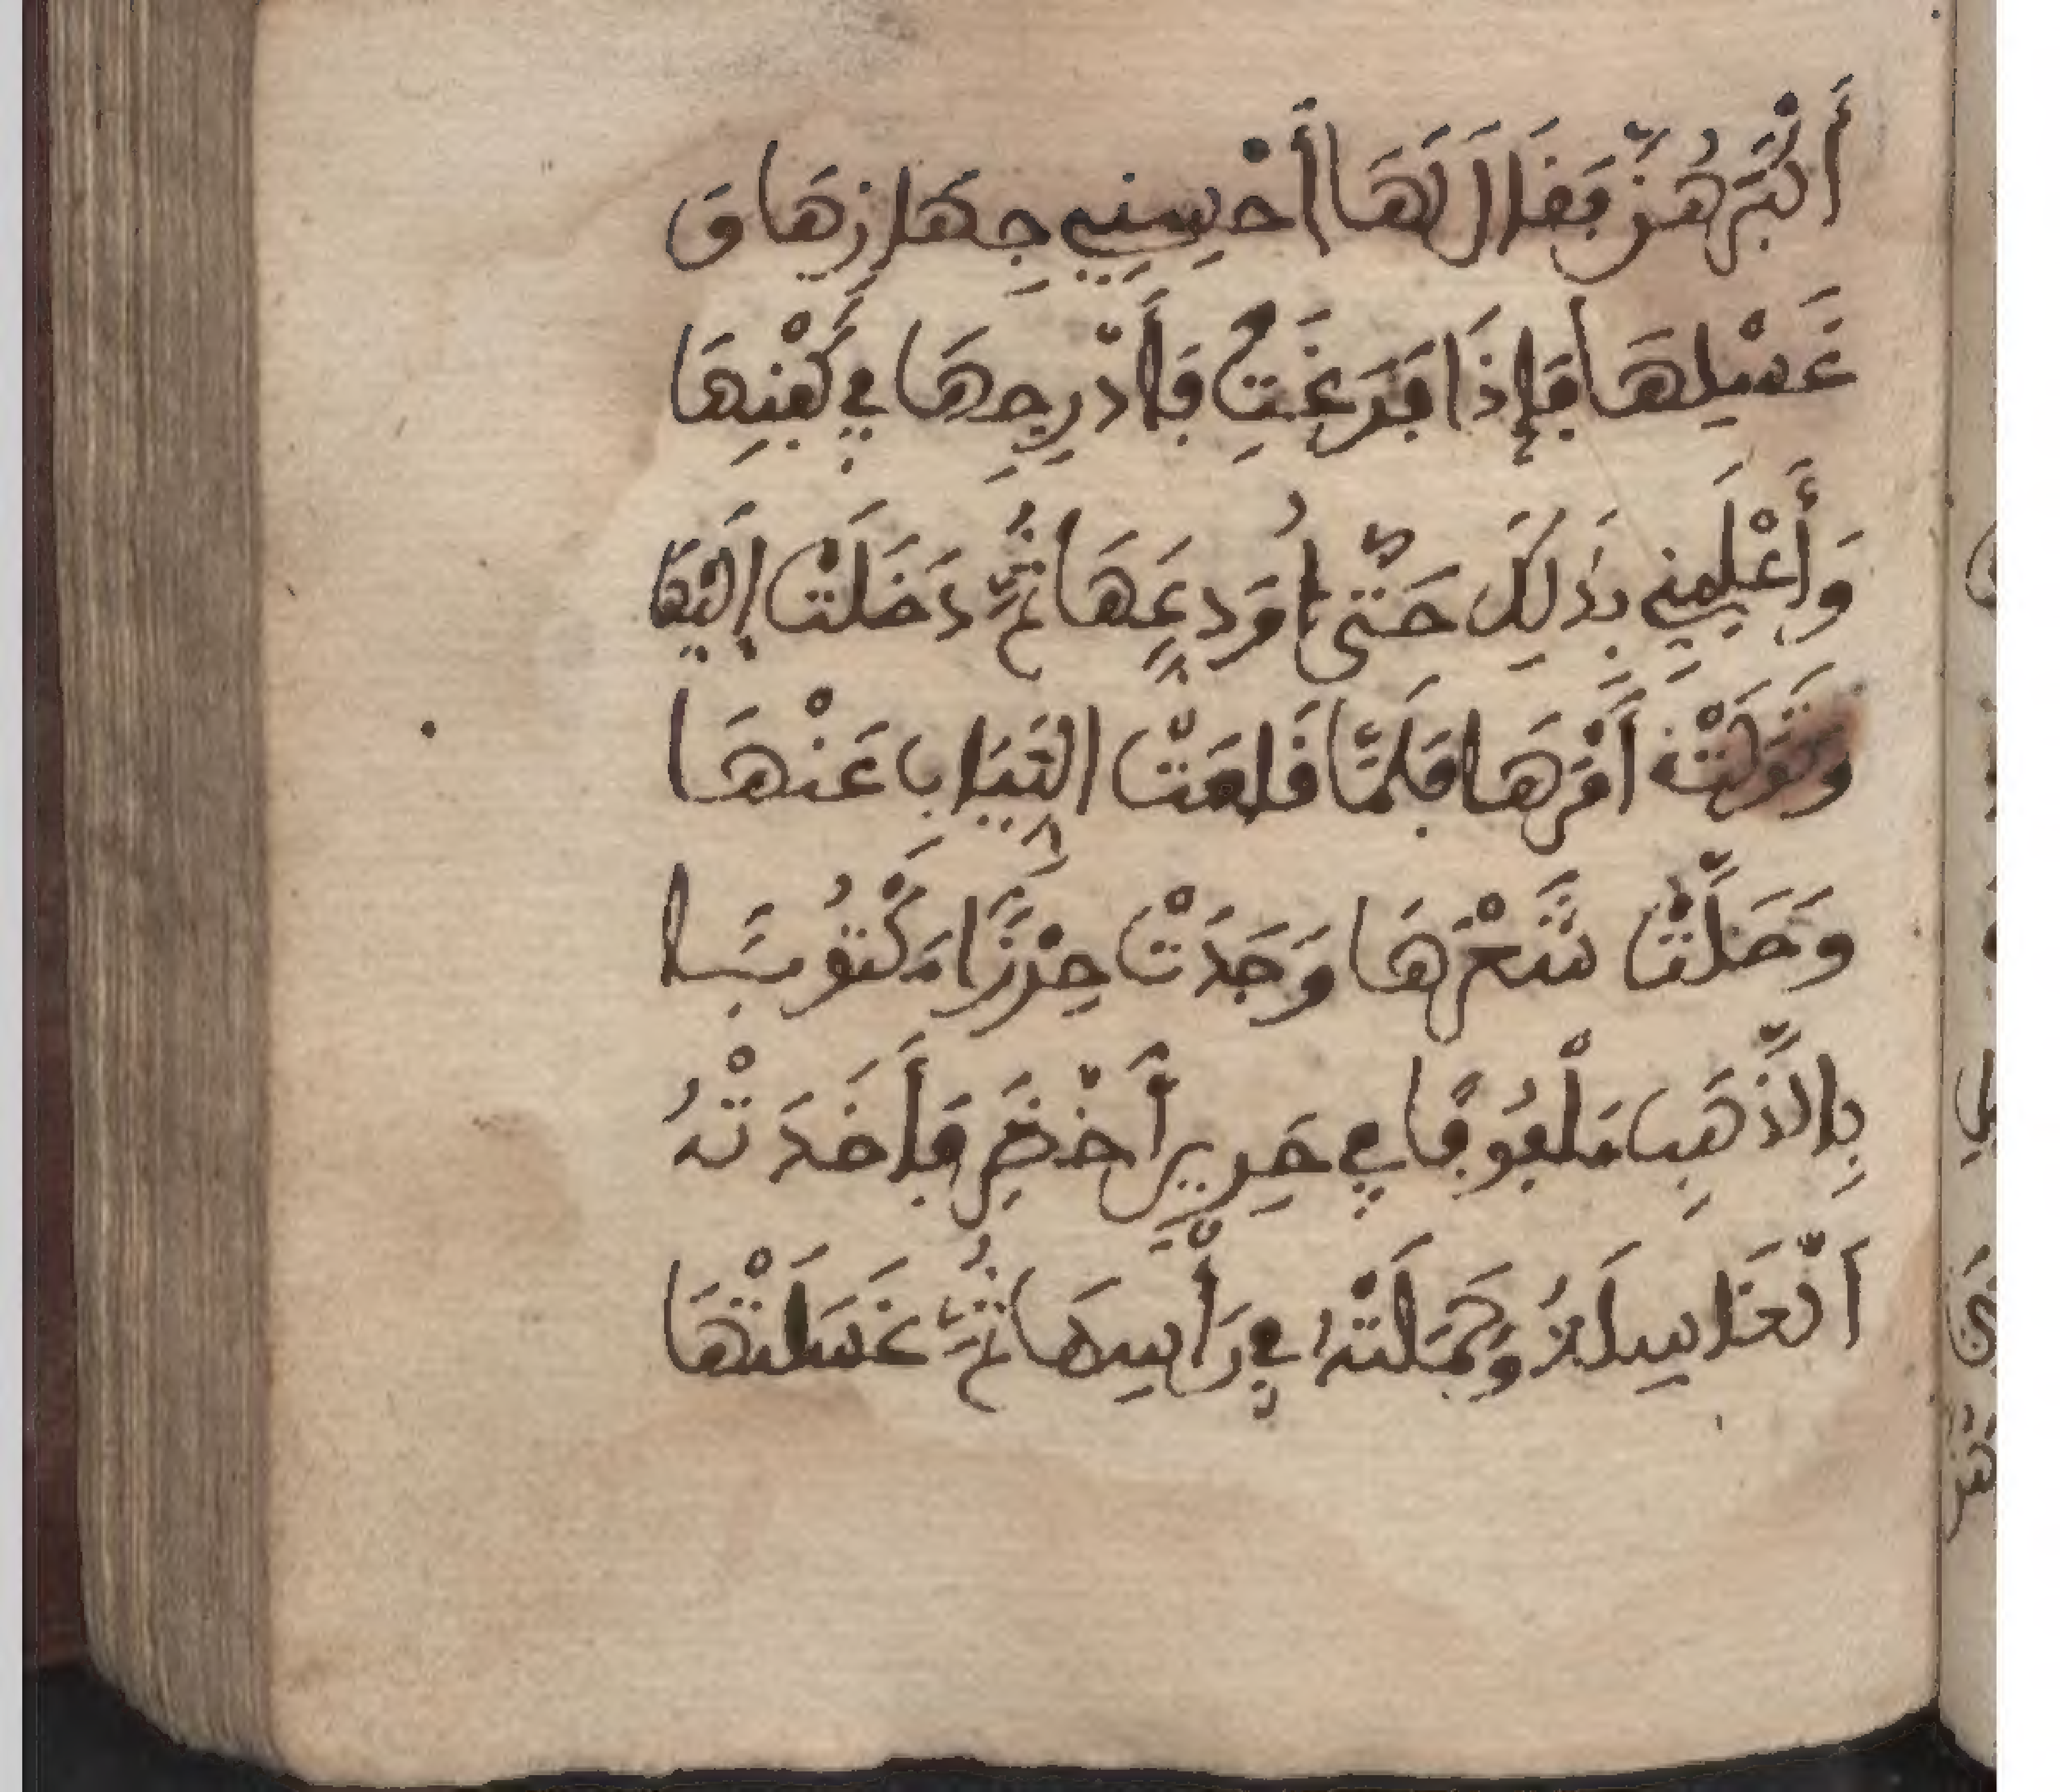 أَكْبَرُهُنَّ فَقَالَ لَهَا أَحْسِنِي جِهَازِهَا وَ
غَسْلِهَا فَإِذَا فَرَغَتِ فَأَدْرِجِهَا فِي كَفْنِهَا
وَأَعْلِمِنِي بِذَلِكَ حَتَّى أُوَدِّعَهَا ثُمَّ دَخَلَتْ إِلَيْهَا
وَتَوَلَّتْ أَمْرَهَا فَلَمَّا خَلَعَتْ الثِّيَابِ عَنْهَا
وَحَلَّتْ شَعْرَهَا وَجَدَتْ حِرْزًا مَكْتُوبًا
بِالذَّهَبِ مَلْفُوفًا فِي حَرِيرٍ أَخْضَرٍ فَأَخَدَتْهُ
اَلْغَاسِلَةُ وَجَعَلَتْهُ فِي رَأْسِهَا ثُمَّ غَسَلَتْهَا